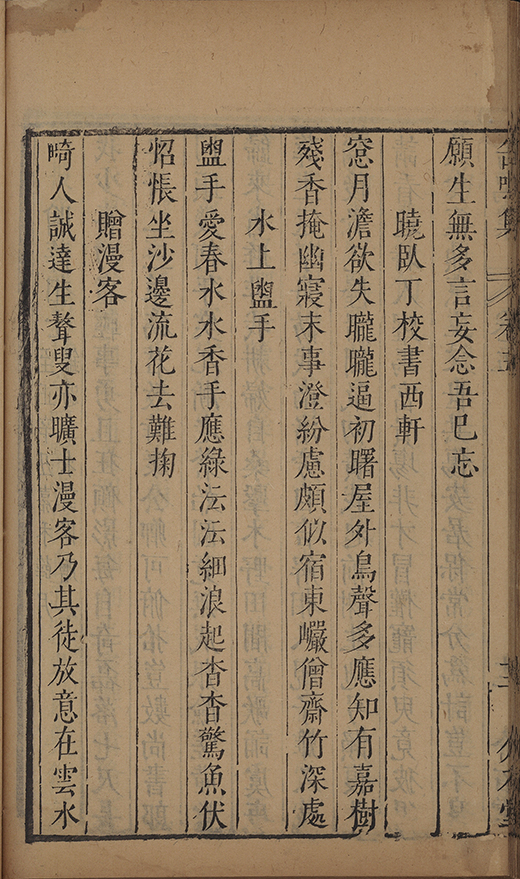 願生無多言妄念吾已忘
曉臥丁校書西軒
窓月澹欲失曨曨逼初曙屋外鳥聲多應知有嘉樹
殘香掩幽寢未事澄紛慮頗似宿東巖僧齋竹深處
水上盥手
盥手愛春水水香手應綠沄沄細浪起杳杳驚魚伏
怊悵坐沙邊流花去難掬
贈漫客
畸人誠達生聱叟亦曠士漫客乃其徒放意在雲水